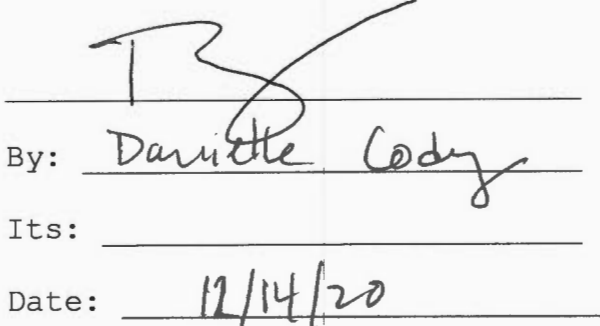 By: Danielle Cody
Its:
Date: 12/14/20